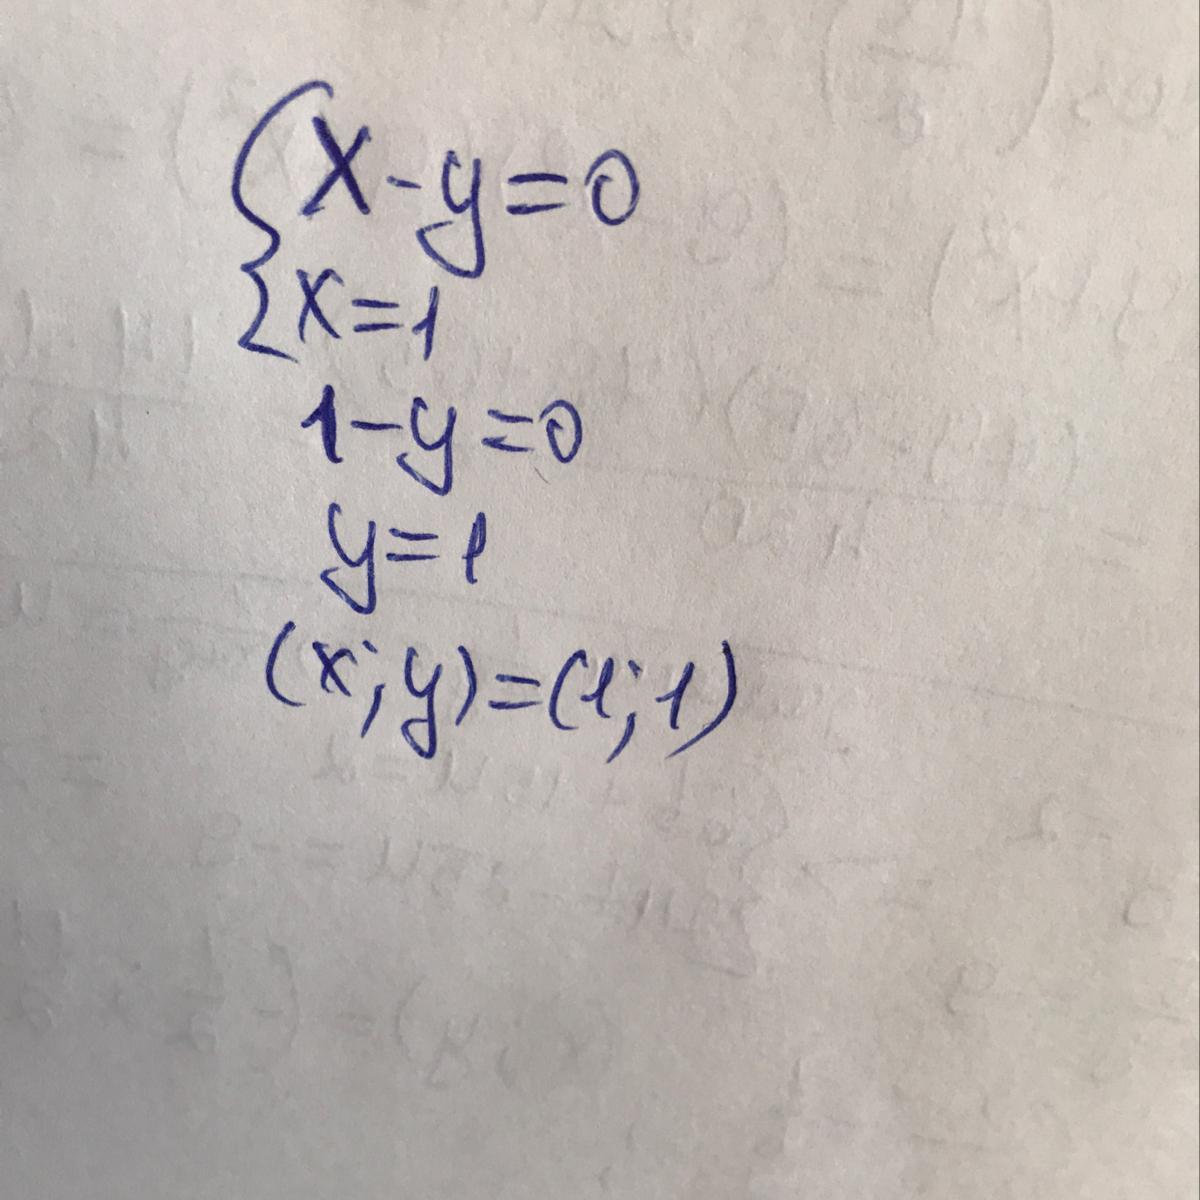 {x-y=0
x=1
1-y=0
y=1
(x;y)=(1;1)